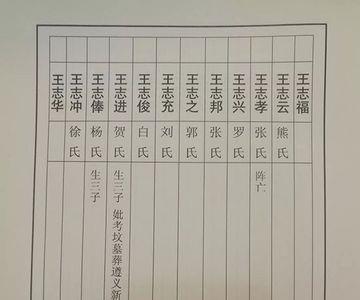 王志福
王志云 熊氏
王志孝 张氏 阵亡
王志兴 罗氏
王志邦 张氏
王志之 郭氏
王志充 刘氏
王志俊 白氏
王志进 贺氏 生三子 妣考坟墓葬遵义新
王志俸 杨氏 生三子
王志冲 徐氏
王志华